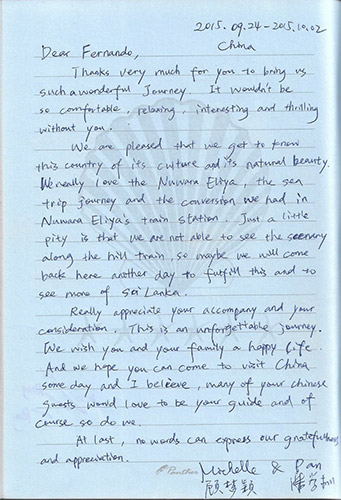 2015.09.24-2015.10.02
China
Dear Fernando,
Thanks very much for you to bring us
such a wonderful Journey. It wouldn't be
so comfortable, relaxing, interesting and thrilling
without you.
We are pleased that we get to know
this country of its culture and its natural beauty.
We really love the Nuwara Eliya, the sea
trip journey and the conversion we had in
Nuwara Eliya's train station. Just a little
pity is that we are not able to see the scenery
along the hill train, so maybe we will come
back here another day to fulfill this and to
see more of Sri Lanka.
Really appreciate your accompany and your
consideration. This is an unforgettable journey.
We wish you and your family a happy life.
And we hope you can come to visit China
some day and I believe, many of your chinese
guests would love to be your guide and of
course so do we.
At last, no words can express our gratefulness
and appreciation.
Panther
Michelle & Pan
顾梦颖